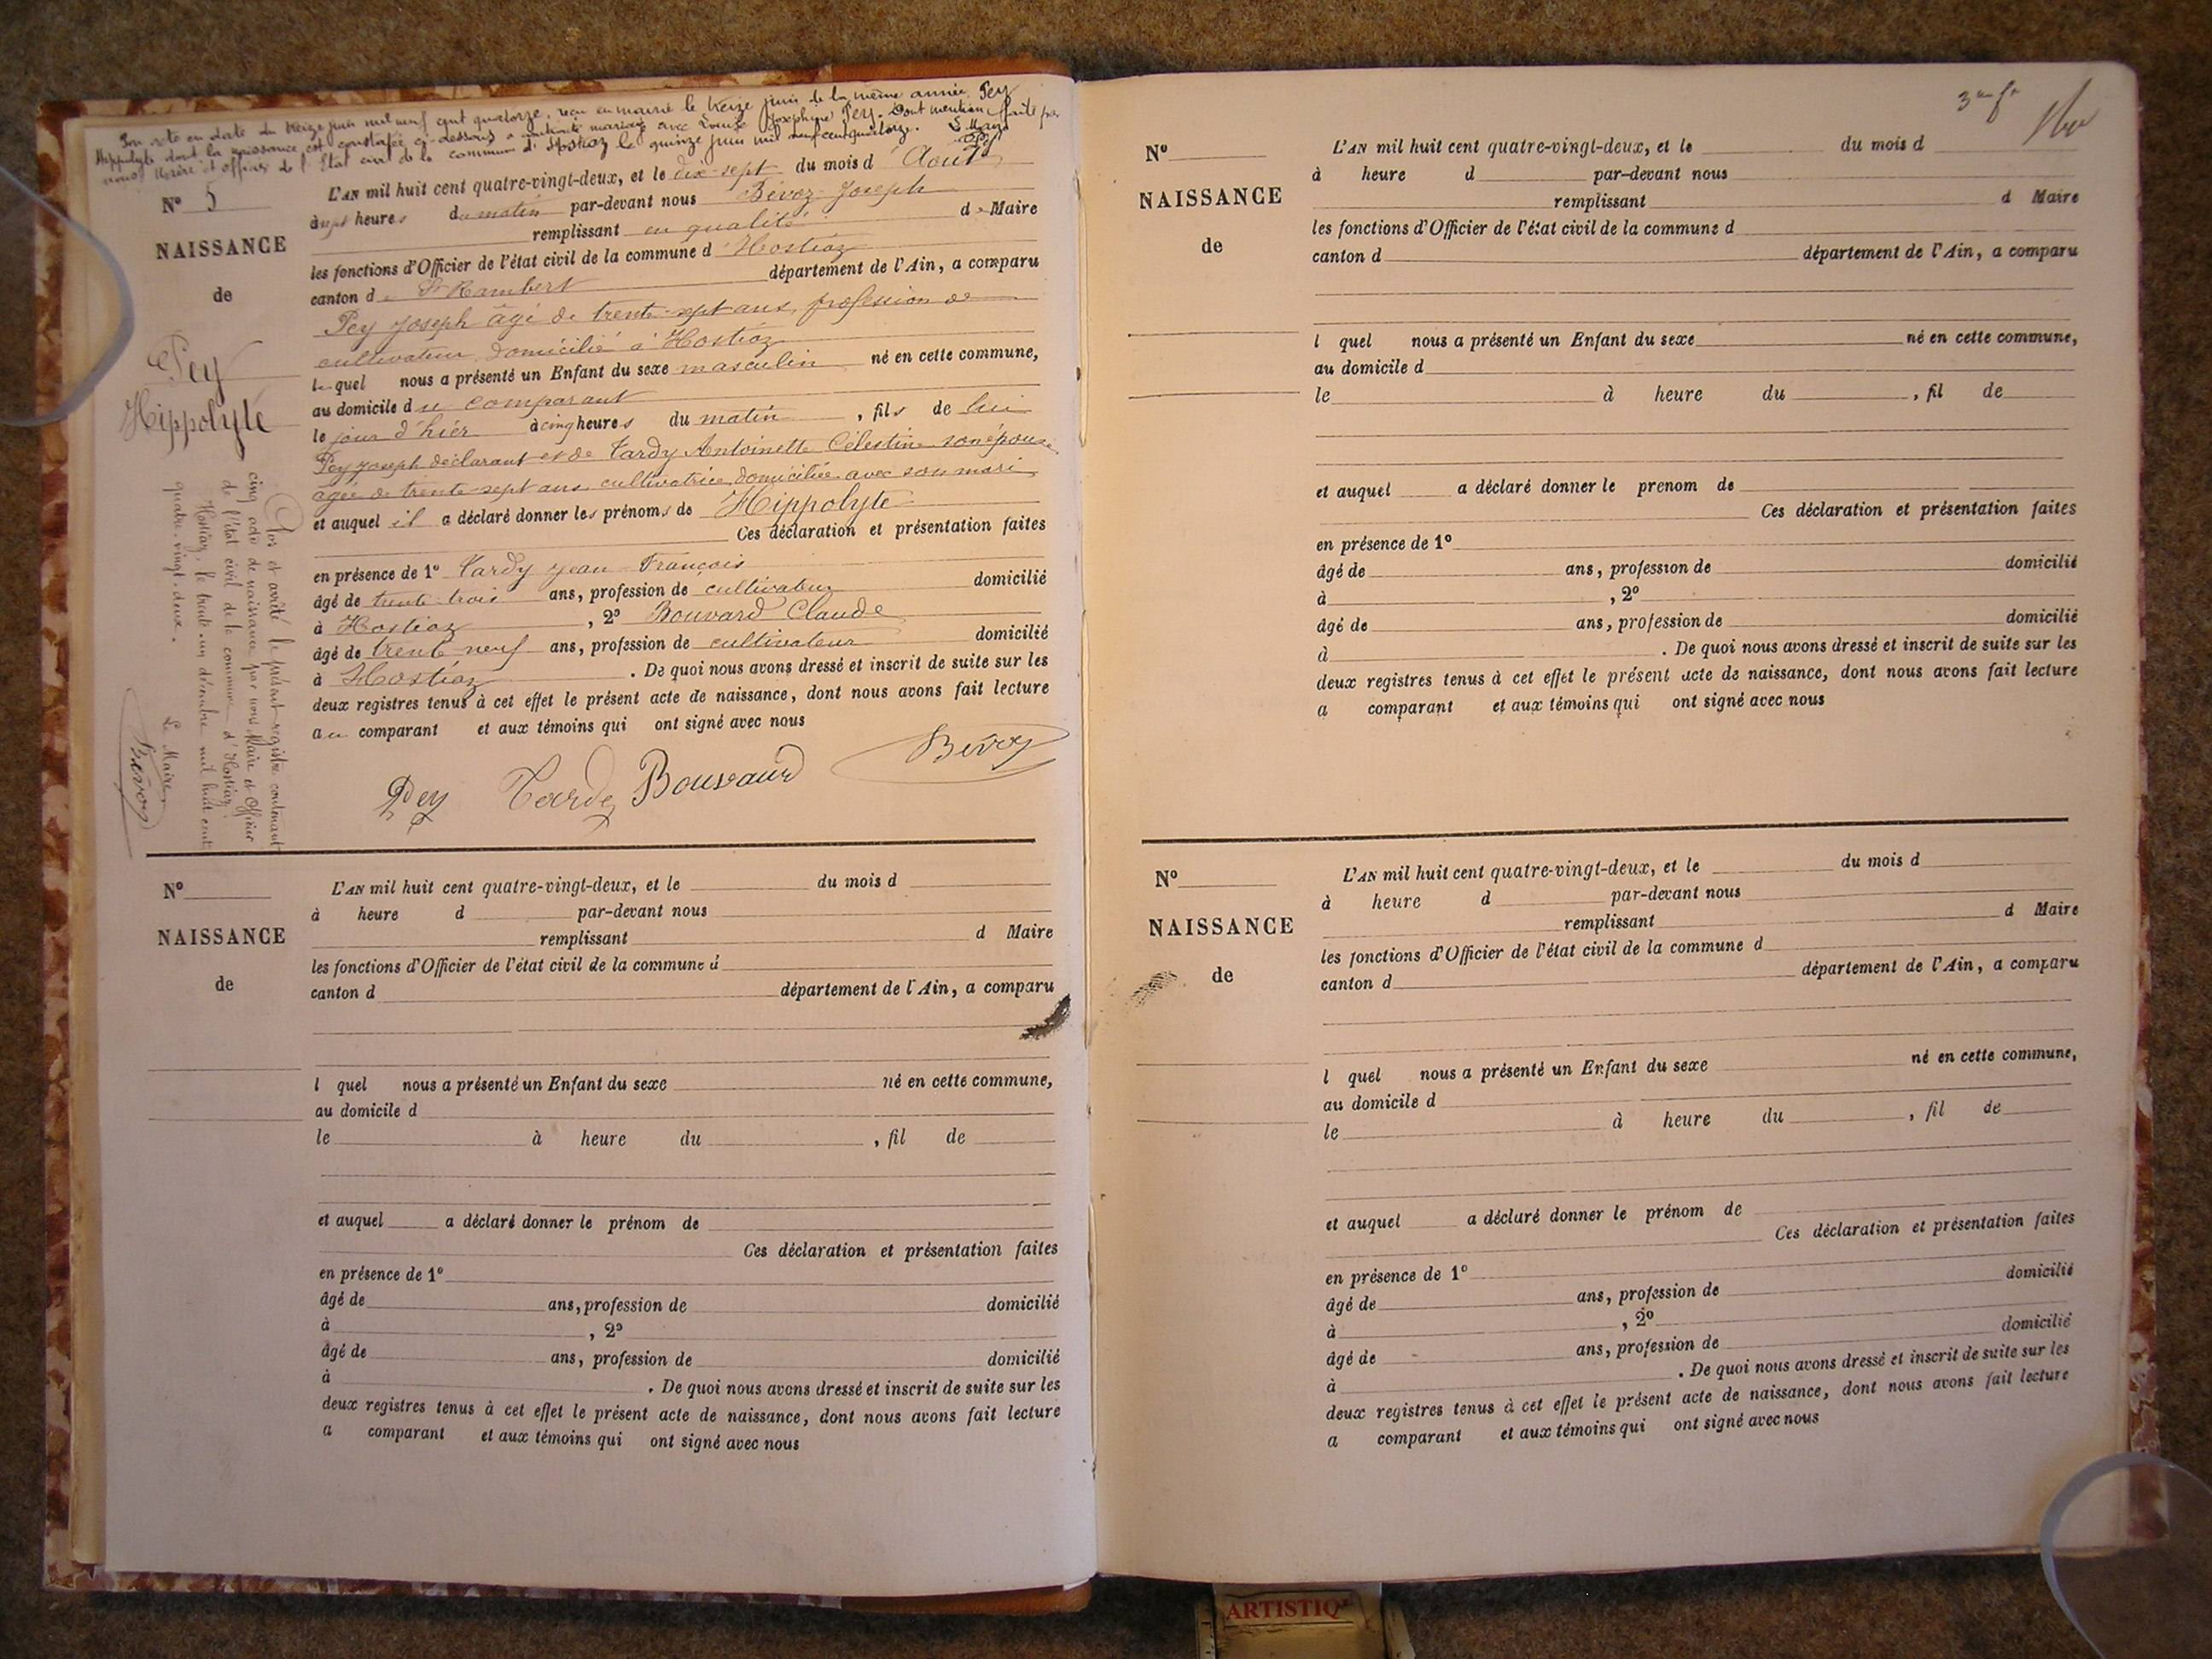 Par acte en date du treize juin mil neuf cent quatorze, reçu en mairie le treize juin de la même année, Pey
Hippolyte dont la naissance est constatée ci-dessous a contracté mariage avec Louise Joséphine Pey. Dont mention faite par
nous Maire et officier de l'État civil de la commune d'Hostiaz le quinze juin mil neuf cent quatorze. Le Maire
Pey
N° 5
NAISSANCE
de
Pey
Hippolyte
L'AN mil huit cent quatre-vingt-deux, et le dix-sept du mois d'Août
à sept heures du matin par-devant nous Bévoz Joseph
remplissant en qualité de Maire
les fonctions d'Officier de l'état civil de la commune d'Hostiaz
canton de St Rambert département de l'Ain, a comparu
Pey Joseph âgé de trente-sept ans, profession de
cultivateur domicilié à Hostiaz
lequel nous a présenté un Enfant du sexe masculin né en cette commune,
au domicile du comparant
le jour d'hier à cinq heures du matin, fils de lui
Pey Joseph déclarant et de Tardy Antoinette Célestine son épouse
agée de trente-sept ans, cultivatrice, domiciliée avec son mari
et auquel il a déclaré donner les prénoms de Hippolyte
Ces déclaration et présentation faites
en présence de 1° Tardy Jean François
âgé de trente-trois ans, profession de cultivateur domicilié
à Hostiaz, 2° Bouvard Claude
âgé de trente neuf ans, profession de cultivateur domicilié
à Hostiaz. De quoi nous avons dressé et inscrit de suite sur les
deux registres tenus à cet effet le présent acte de naissance, dont nous avons fait lecture
au comparant et aux témoins qui ont signé avec nous
Pey Tardy Bouvard Bévoz
Clos et arrêté le présent registre contenant
cinq actes de naissance par nous Maire et Officier
de l'état civil de la commune d'Hostiaz
Hostiaz le trente-un décembre mil huit cent
quatre-vingt-deux.
Le Maire
Bévoz
N°
NAISSANCE
de
L'AN mil huit cent quatre-vingt-deux, et le du mois d
à heure d par-devant nous
remplissant d Maire
les fonctions d'Officier de l'état civil de la commune d
canton d département de l'Ain, a comparu
l quel nous a présenté un Enfant du sexe né en cette commune,
au domicile d
le à heure du , fil de
et auquel a déclaré donner le prénom de
Ces déclaration et présentation faites
en présence de 1°
âgé de ans, profession de domicilié
à , 2°
âgé de ans, profession de domicilié
à . De quoi nous avons dressé et inscrit de suite sur les
deux registres tenus à cet effet le présent acte de naissance, dont nous avons fait lecture
a comparant et aux témoins qui ont signé avec nous
N°
NAISSANCE
de
L'AN mil huit cent quatre-vingt-deux, et le du mois d
à heure d par-devant nous
remplissant d Maire
les fonctions d'Officier de l'état civil de la commune d
canton d département de l'Ain, a comparu
l quel nous a présenté un Enfant du sexe né en cette commune,
au domicile d
le à heure du , fil de
et auquel a déclaré donner le prenom de
Ces déclaration et présentation faites
en présence de 1°
âgé de ans, profession de domicilié
à , 2°
âgé de ans, profession de domicilié
à . De quoi nous avons dressé et inscrit de suite sur les
deux registres tenus à cet effet le présent acte de naissance, dont nous avons fait lecture
a comparant et aux témoins qui ont signé avec nous
N°
NAISSANCE
de
L'AN mil huit cent quatre-vingt-deux, et le du mois d
à heure d par-devant nous
remplissant d Maire
les fonctions d'Officier de l'état civil de la commune d
canton d département de l'Ain, a comparu
l quel nous a présenté un Enfant du sexe né en cette commune,
au domicile d
le à heure du , fil de
et auquel a déclaré donner le prénom de
Ces déclaration et présentation faites
en présence de 1°
âgé de ans, profession de domicilié
à , 2°
âgé de ans, profession de domicilié
à . De quoi nous avons dressé et inscrit de suite sur les
deux registres tenus à cet effet le présent acte de naissance, dont nous avons fait lecture
a comparant et aux témoins qui ont signé avec nous
ARTISTIQ